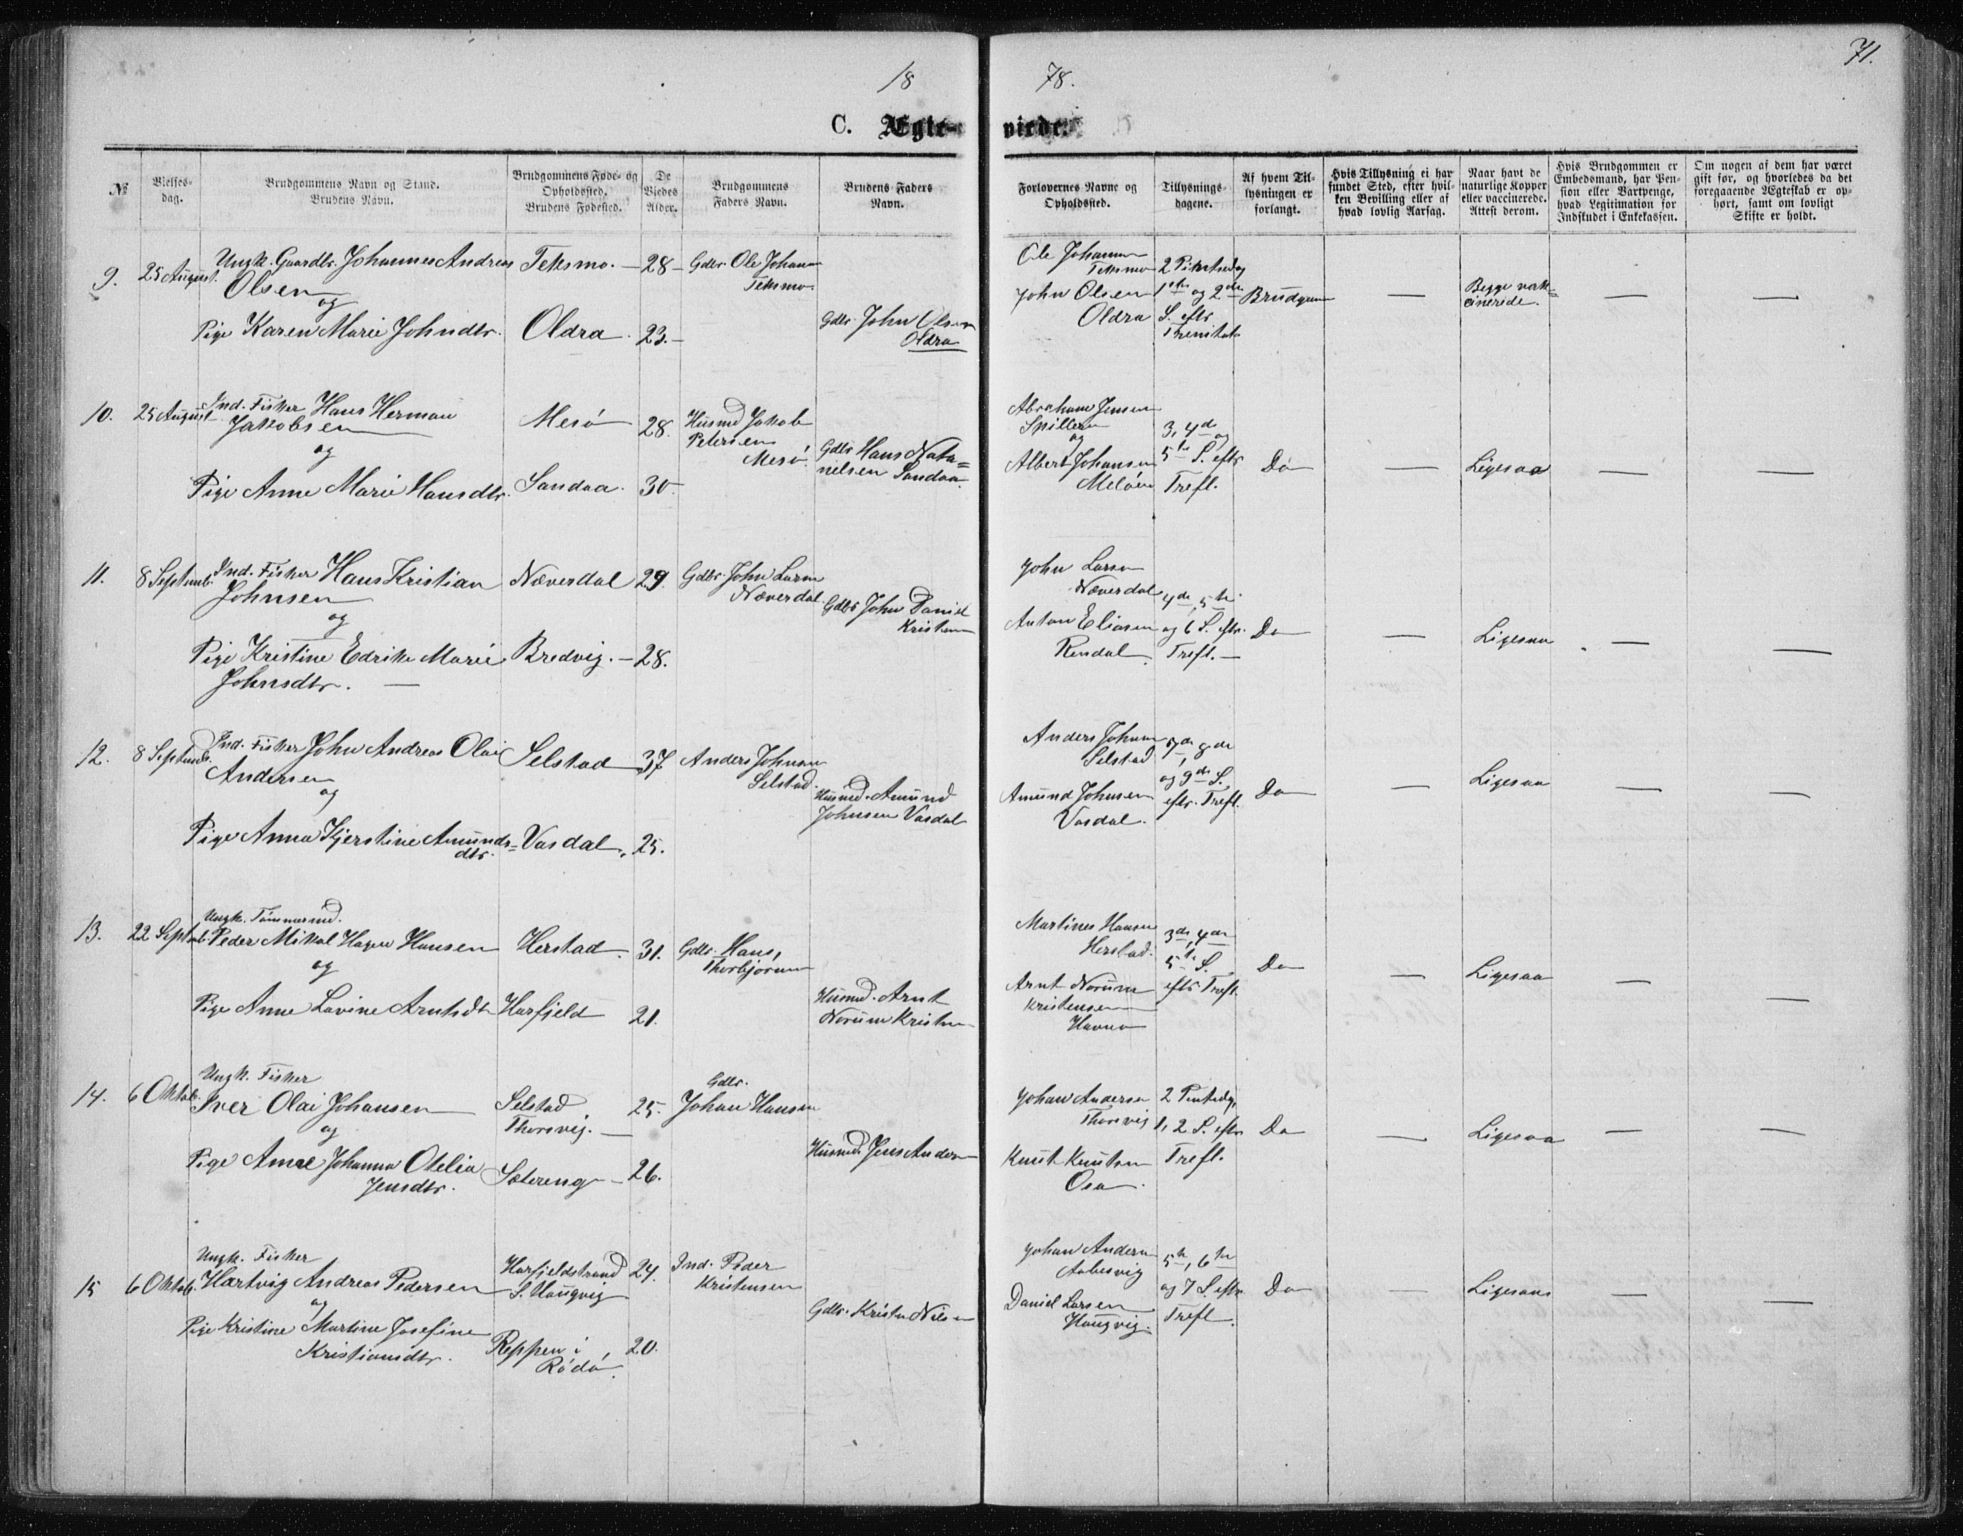 71.
18 78.
C. Ægte- viede.
№
Vielses-
dag.
Brudgommens Navn og Stand.
Brudens Navn.
Brudgommens Føde- og
Opholdssted.
Brudens Fødested.
De
Viedes
Alder.
Brudgommens
Faders Navn.
Brudens Faders
Navn.
Forlovernes Navne og
Opholdssted.
Tillysnings-
dagene.
Af hvem Til-
lysningen er
forlangt.
Hvis Tillysning ei har
fundet Sted, efter hvil-
ken Bevilling eller af
hvad lovlig Aarsag.
Naar havt de
naturlige Kopper
eller vaccinerede.
Attest derom.
Hvis Brudgommen er
Embedsmand, har Pen-
sion eller Vartpenge,
hvad Legitimation for
Indskudet i Enkekassen.
Om nogen af dem har været
gift før, og hvorledes da det
foregaaende Ægteskab er op-
hørt, samt om lovligt
Skifte er holdt.
9. 25 August.
Ungk. Gaardbr. Johannes Andreas
Olsen
og
Pige Karen Marie Johndtr.
Teksmo. — 28 —
Oldra. 23. —
Gdbr. Ole Johan
Teksmo
Gdbr. John Olsen
Oldra
Ole Johannn
Teksmo
John Olsen
Oldra
1ste og 2den
S. eftr
Brudgom — Begge vak=
cinerede. — —
10. 25 August
Ind. Fisker Hans Herman
Jakobsen
og
Pige Anne Marie Hansdtr.
Mesø 28.
Sandaa. 30.
Husmd Jakob
Petersen
Mesø.
Gdbr Hans Nata=
nielsen Sandaa.
Abraham Jensen
og
Albert Johansen
Meløen
3, 4de og
5te S. eftr
Trefl.
Do — Ligesaa — —
11. 8 Septemb.
Ind. Fisker Hans Kristian
Johnsen
og
Pige Kristine Edrike Marie
Johnsdtr. —
Næverdal 29.
Bredvig. — 28.
Gdbr. John Larsen
Næverdal
Gdbr John Daniel
Kristen
John Larsen
Næverdal
Anton Eliasen
Rendal
4de, 5te
og 6 S. eftr.
Trefl. —
Do — Ligesaa — —
12. 8 Septemb.
Ind. Fisker John Andreas Olai
Andersen
og
Pige Anna Kjerstine Amunds=
dtr.
Selstad 37
Vasdal. 25.
Anders Johnsen
Selstad.
Husmd. Amund
Johnsen Vasdal
Anders Johnsen
Selstad
Amund Johnsen
Vasdal.
7de, 8de
og 9de S.
eftr. Trefl.
Do — Ligesaa — —
13. 22 Septemb.
Ungk. Tømmermd.
Peder Mikal Hagen Hansen
og
Pige Anne Lavine Arntsdtr
Herstad. 31.
Harfjeld 21.
Gdbr. Hans
Thorbjørnsen
Husmd. Arnt
Norum Kristen
Martines Hansen
Herstad.
Arnt Norum
Kristensen
Havnen
3de, 4de
5te S.
eftr Trefl.
Do — Ligesaa — —
14. 6 Oktob.
Ungk. Fisker
Iver Olai Johansen
og
Pige Anne Johanna Otelia
Jensdtr.
Selstad
Thorsvig. — 25.
Sætereng — 26.
Gdbr.
Johan Hansen
Husmd. Jens Andersen
Johan Andersen
Thorsvig
Knut Knutsen
Osa
1, 2 S. eftr
Trefl.
Do — Ligesaa — —
15 6 Oktob.
Ungk. Fisker
Hartvig Andreas Pedersen
og
Pige Kristine Martine Josefine
Kristiansdtr.
Harfjeldstrand
S. Haugvig 24.
Reppen i
Rødø. 20.
Ind. Peder
Kristensen
Gdbr. Kristen Nilsen
Johan Andersen
Aabesvig
Daniel Larsen
Haugvig.
5te, 6te
og 7 S. eftr
Trefl.
Do — Ligesaa — —